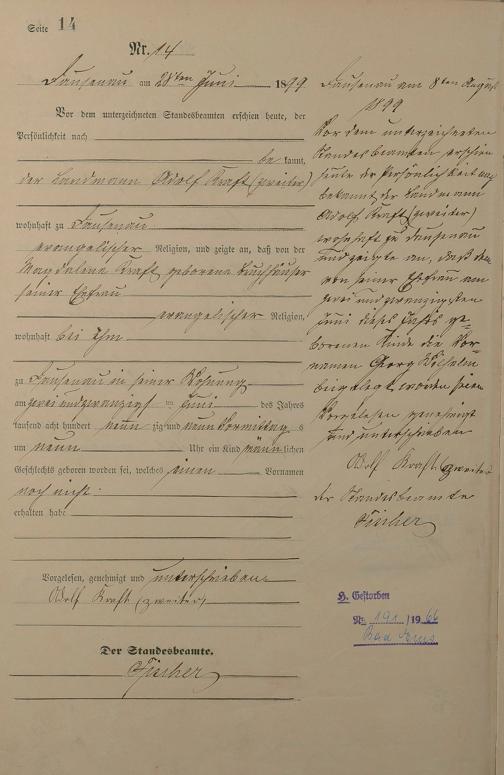 Seite 14
Nr. 14
Dausenau am 28ten Juni 1899
Vor dem unterzeichneten Standesbeamten erschien heute, der
Persönlichkeit nach
be kannt,
der Landmann Adolf Kraft (zweiter)
wohnhaft zu Dausenau
evangelischer Religion, und zeigte an, daß von der
Magdalena Kraft geborene
seiner Ehefrau
evangelischer Religion,
wohnhaft bei ihm
zu Dausenau in seiner Wohnung
am zweiundzwanzigsten Juni des Jahres
tausend acht hundert neun zig und neun Vormittag s
um neun Uhr ein Kind männ lichen
Geschlechts geboren worden sei, welches einen Vornamen
noch nicht
erhalten habe
Vorgelesen, genehmigt und unterschrieben
Adolf Kraft (zweiter)
Der Standesbeamte.
Fischer
Dausenau am 8ten August
1899
Vor dem unterzeichneten
Standesbeamten erschien
heute der Persönlichkeit nach
bekannt der Landmann
Adolf Kraft (zweiter)
wohnhaft zu Dausenau
und zeigte an, daß dem
von seiner Ehefrau am
zweiundzwanzigsten
Juni dieses Jahres ge-
borenen Kinde die Vor-
namen Georg Wilhelm
beigelegt worden seien
Vorgelesen genehmigt
und unterschrieben
Adolf Kraft (zweiter)
der Standesbeamte
Fischer
H. Gestorben
Nr. 191 /19 66
Bad Ems